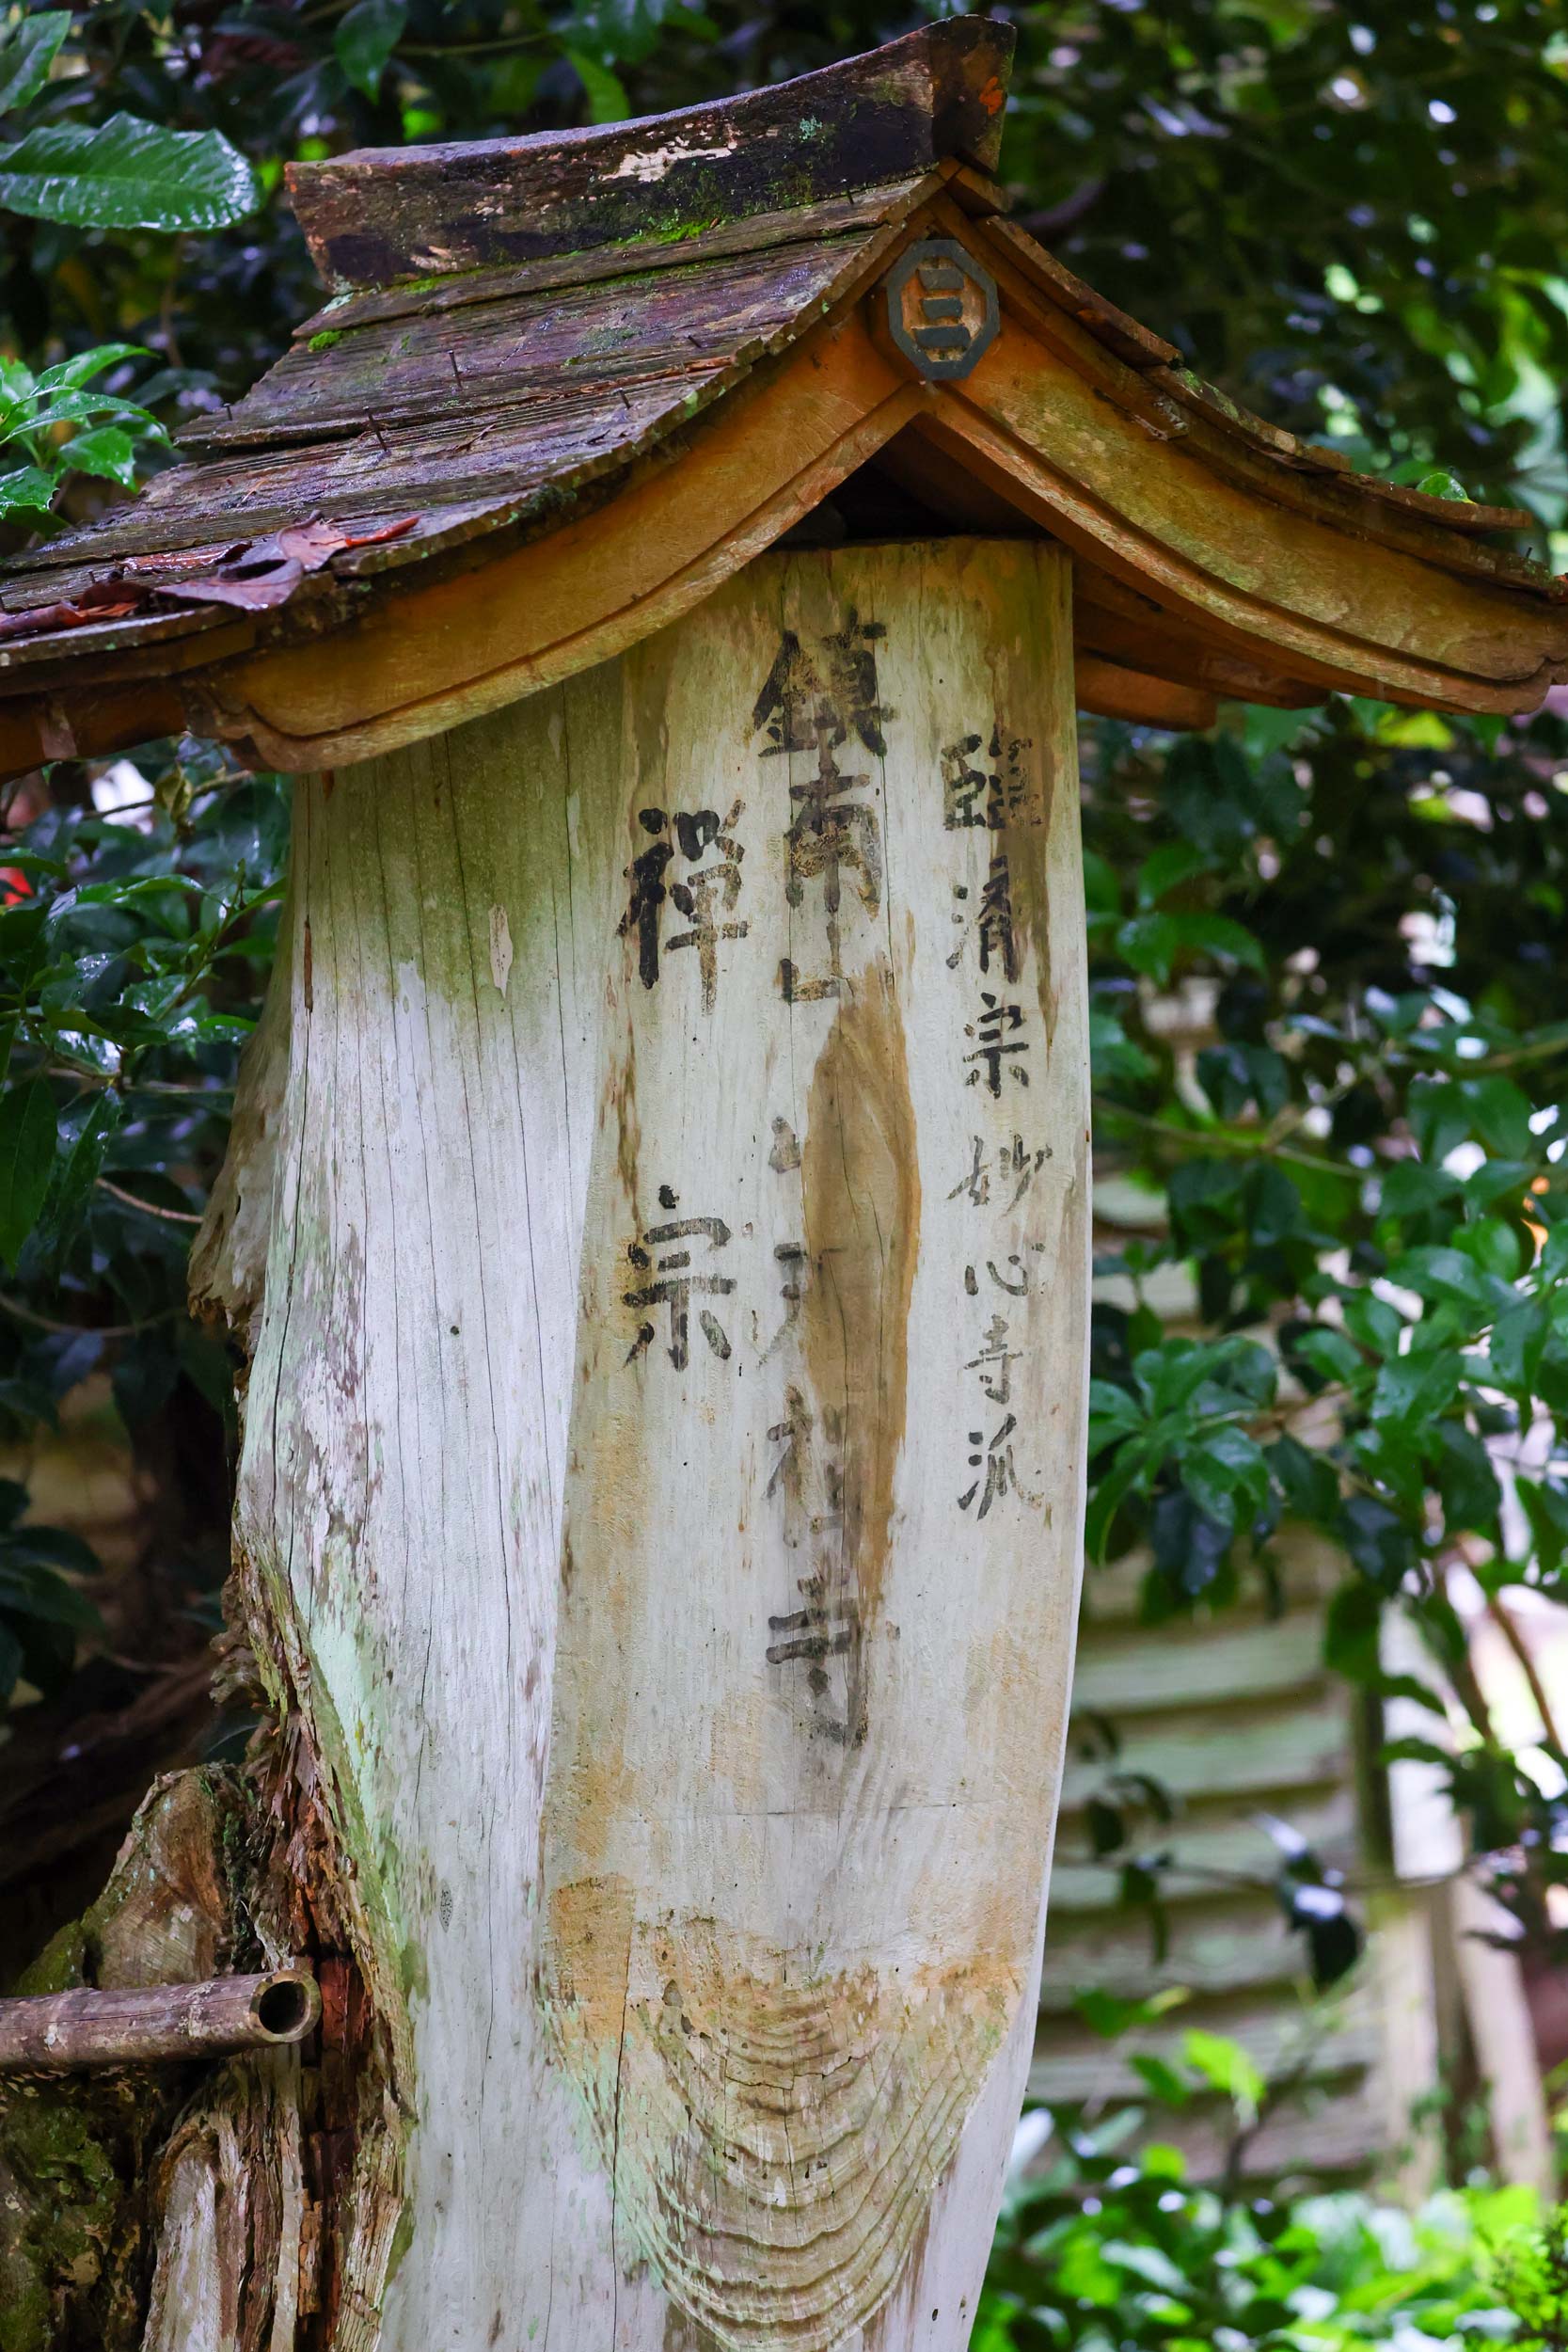 三
臨済宗妙心寺派
鎮南山 寺
禅宗